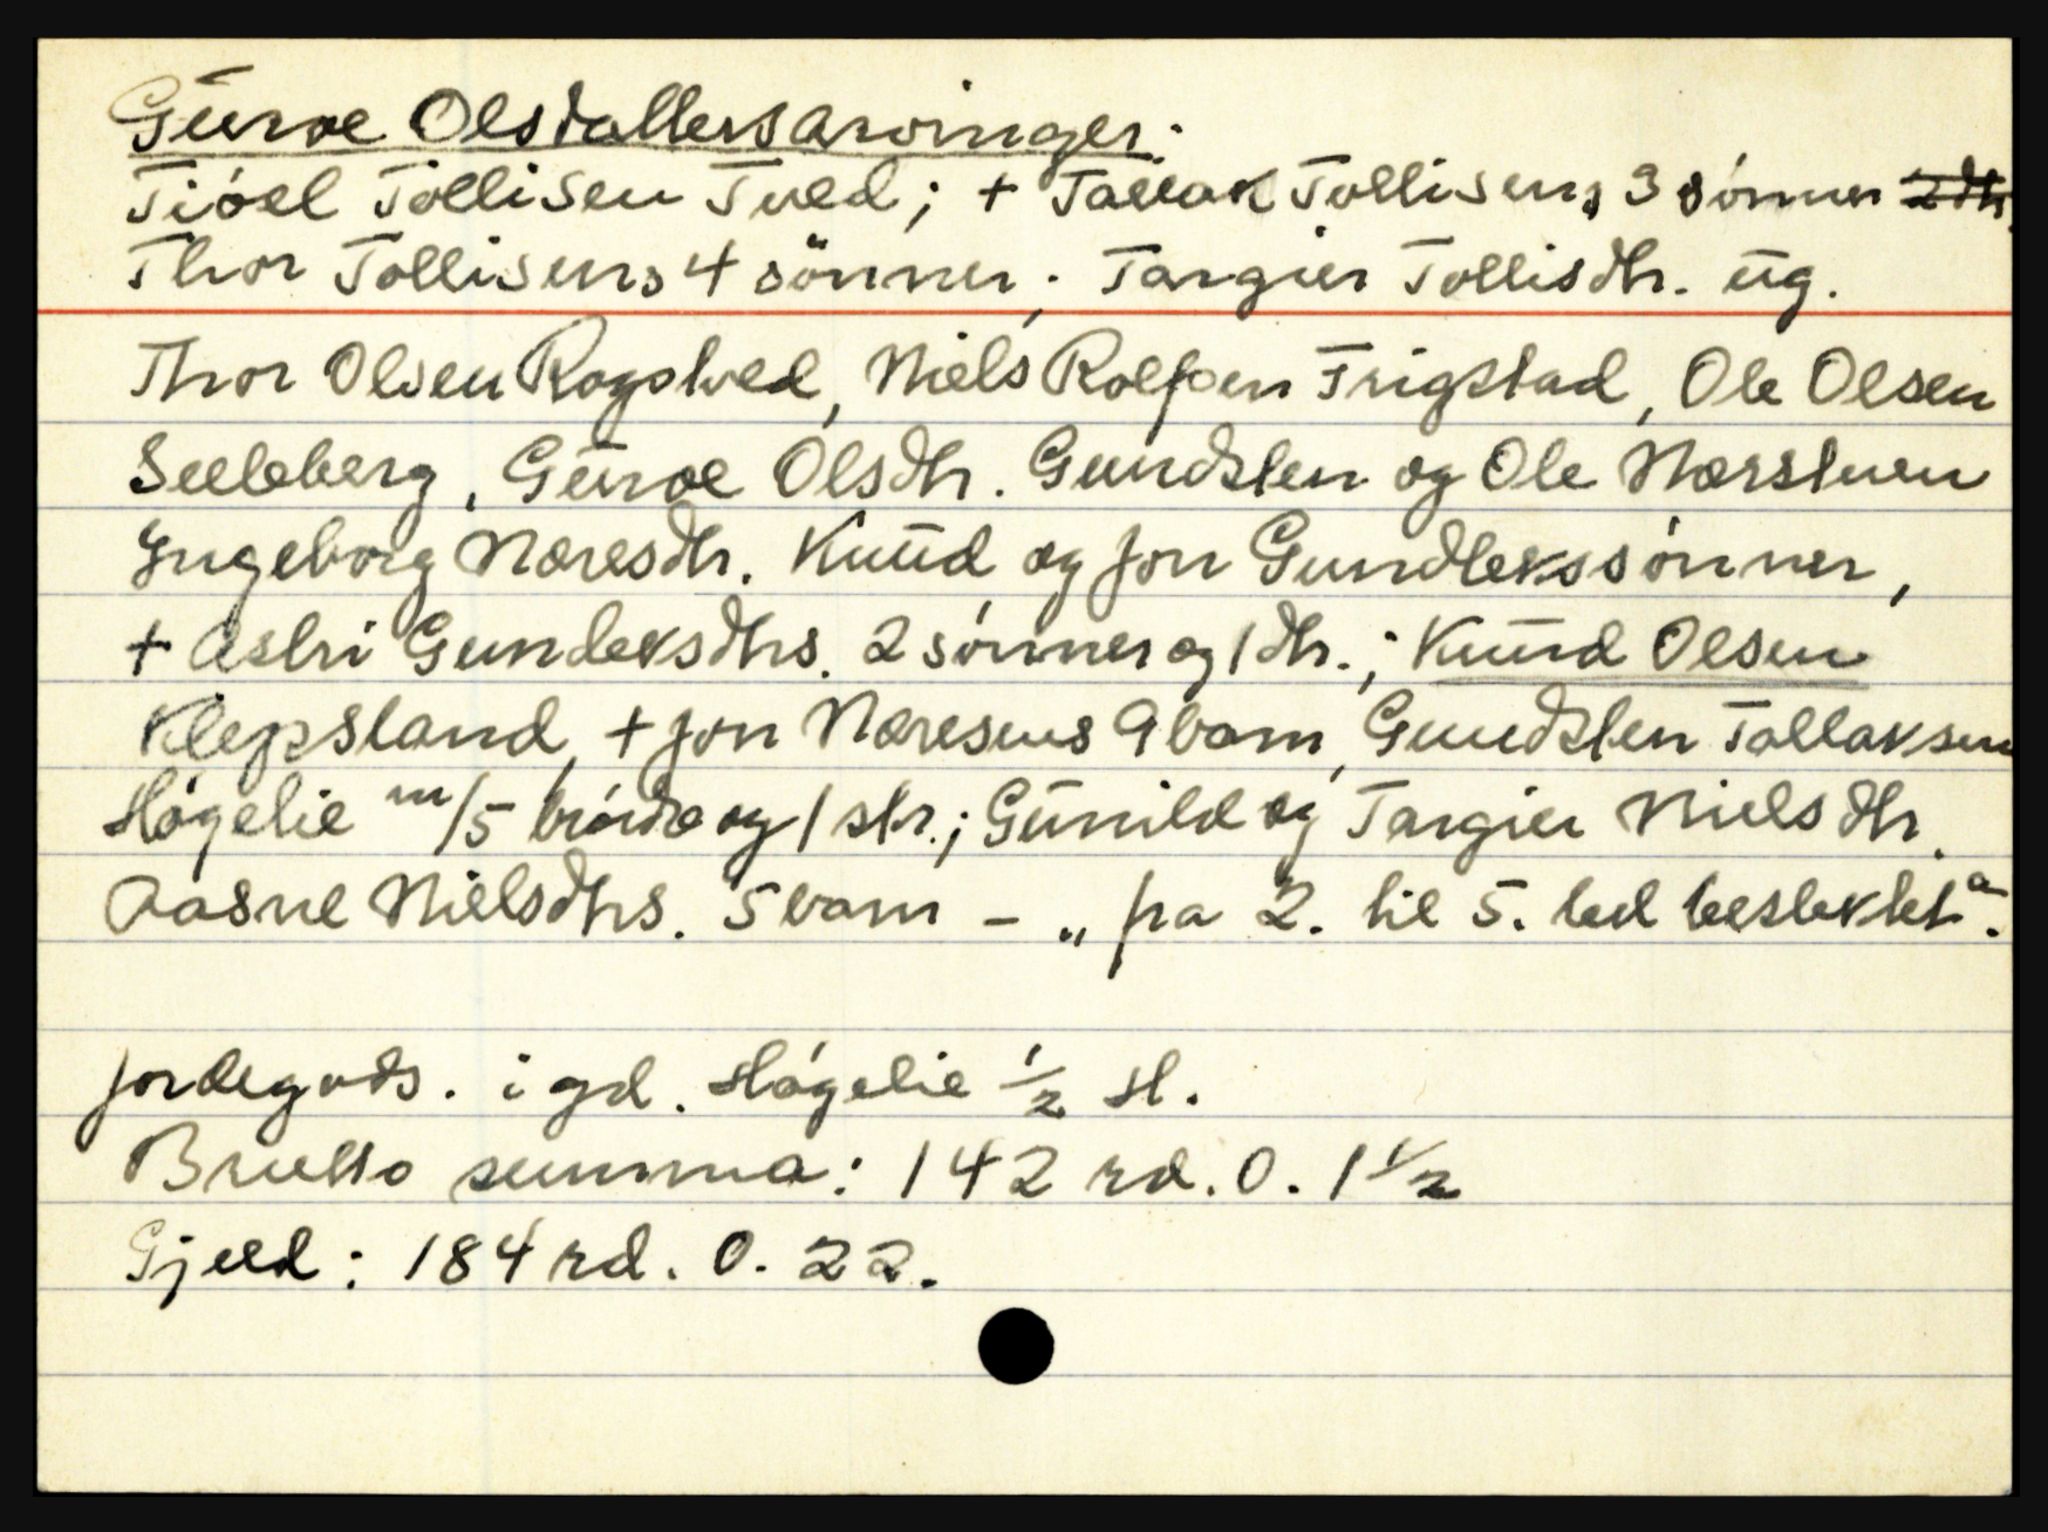 Gūroe Olsdattersarvinger:
Tióel Tollisen Tved; + Tallak Tollisens 3 sónner 2 dtr.
Thor Tollisens 4 sönner; Targier Tollisdtr. ūg.
Thor Olsen Rogstved, Niels Rolfsen Frigstad, Ole Olsen
Seeleberg, Gūroe Olsdtr. Gundsten og Ole Næresønn
Ingeborg Næresdtr. Knūd og Jon Gundlekssónner,
+ Astri Gundleksdtrs. 2 sónner og 1 dtr.; Knūd Olsen
Klepsland, + Jon Næresens 9 barn, Gundsten Tallaksen
Hógelie m/5 bródre og 1 str.; Gūnild og Targier Nielsdtr.
Aasne Nielsdtrs. 5 barn - „fra 2. til 5. led beslektet“.
Jordegods. i gd. Hógelie 1/2 hl.
Brutto summa: 142 rd. 0. 1 1/2
Gjeld: 184 rd. 0. 22.